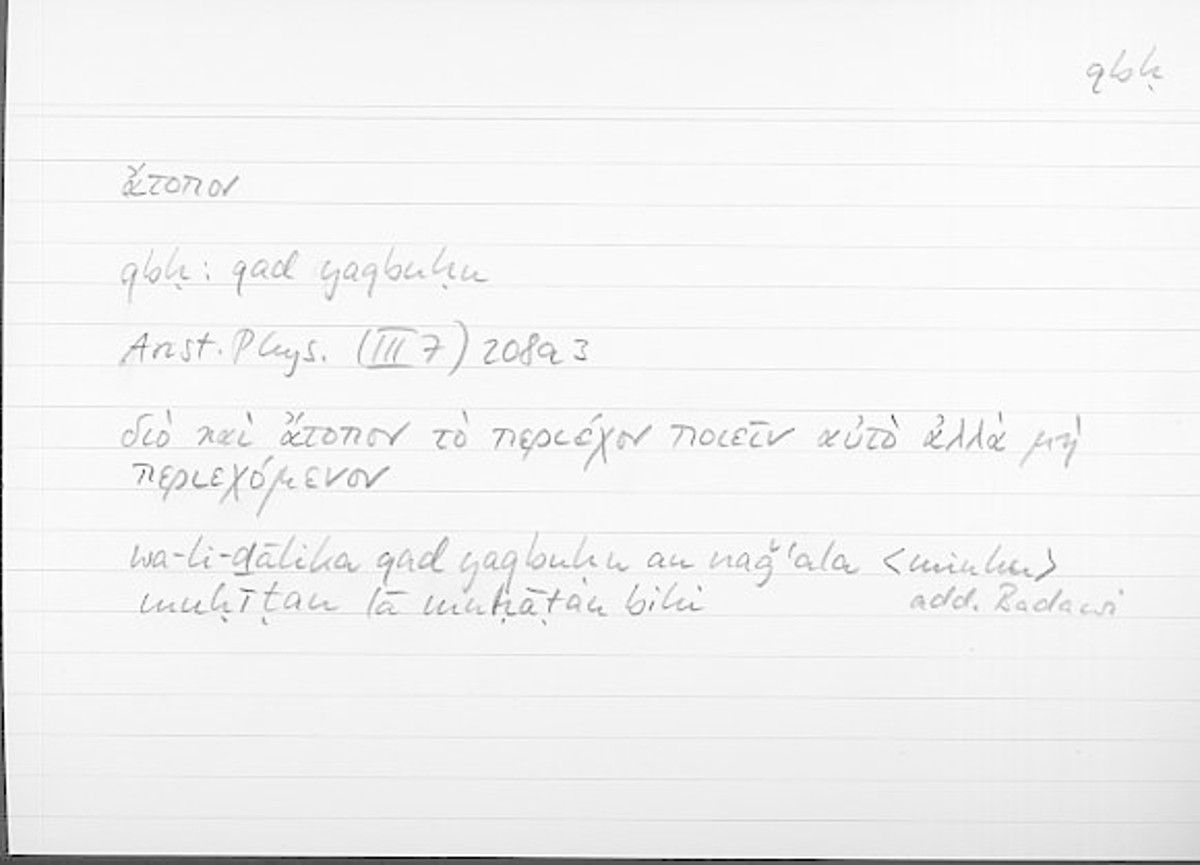 qbḥ
ἄτοπον
qbḥ: qad yaqbuḥu
Arist. Phys. (III 7) 208a 3
διὸ καὶ ἄτοπον τὸ περιέχον ποιεῖν αὐτὸ ἀλλὰ μὴ
περιεχόμενον
wa-li-ḏālika qad yaqbuḥu an naǧʿala <minhu>
muḥīṭan lā muḥāṭan bihi add. Badawi